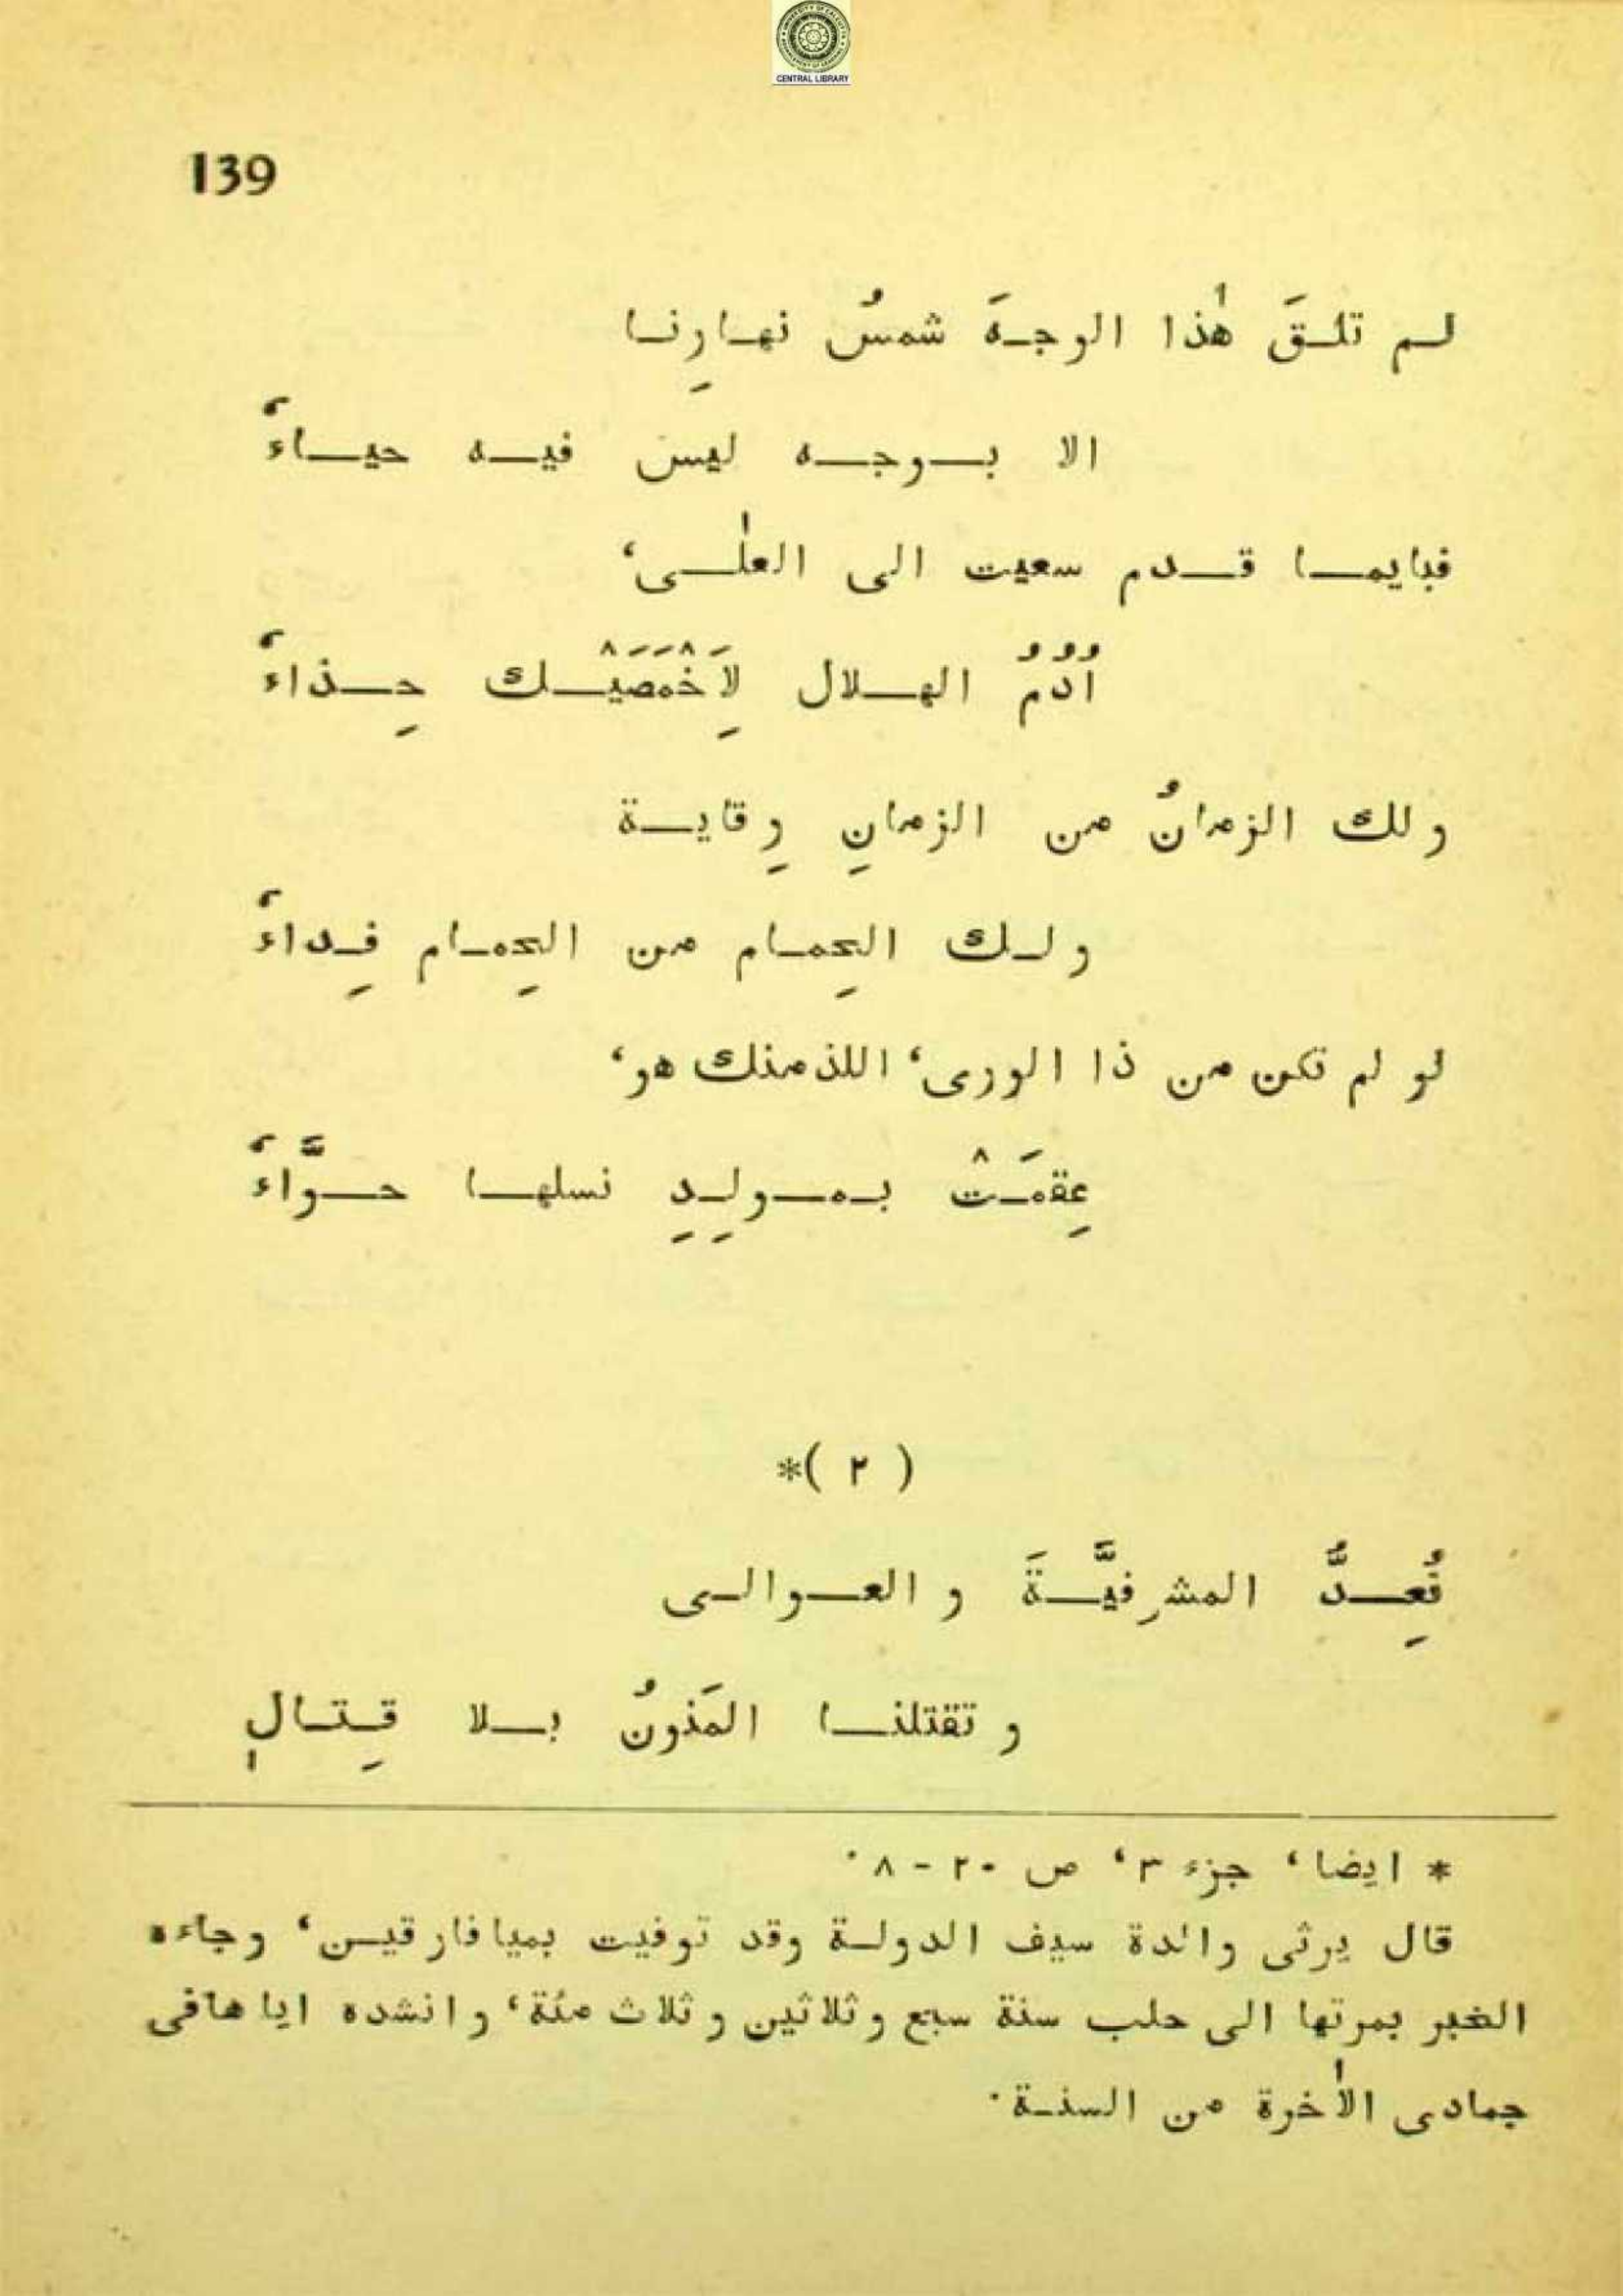 CENTRAL LIBRARY
139
لم تلقَ هٰذا الوجهَ شمسُ نهارِنا
الا بوجه ليس فيه حياءُ
فبايما قدم سعيت الى العلٰى،
اُدُمُ الهلال لِاَخْمَصَيْك حِذاءُ
ولك الزمانُ من الزمانِ وِقاية
ولك الحِمام من الحِمام فِداءُ
لو لم تكن من ذا الورى، اللذ منك هو،
عِقمَتْ بمولِدِ نسلها حوَّاءُ
( ٢ )*
نُعِدُّ المشرفيَّةَ و العوالى
و تقتلنا المَنونُ بلا قِتالٖ
* ايضا، جزء ٣، ص ٢٠ - ٨ ٠
قال يرثى والدة سيف الدولة وقد توفيت بميافارقين، وجاءه
الخبر بمرتها الى حلب سنة سبع وثلاثين وثلاث مئة، وانشده اياها فى
جمادى الاٰخرة من السنة ٠